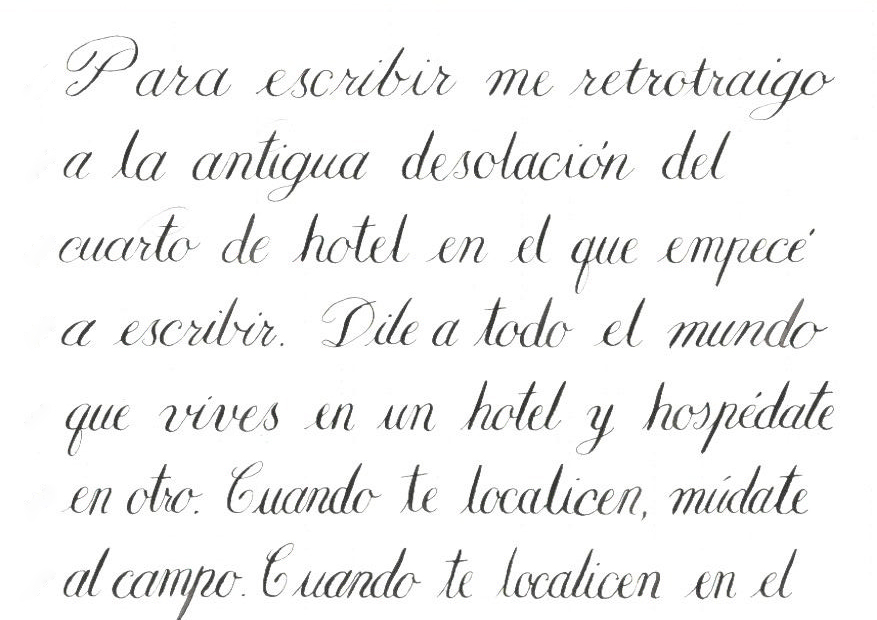 Para escribir me retrotraigo
a la antigua desolación del
cuarto de hotel en el que empecé
a escribir. Dile a todo el mundo
que vives en un hotel y hospédate
en otro. Cuando te localicen, múdate
al campo. Cuando te localicen en el